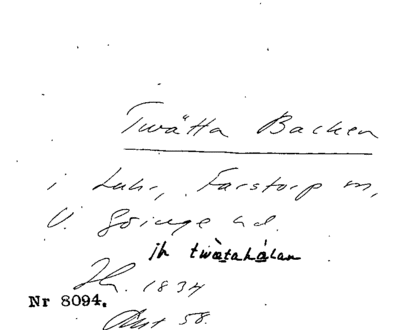 Twätta Backen
i Luhr, Farstorp sn,
V. Göinge hd.
jh twàtahálan
Jh. 1834
Nr 8094.
58.